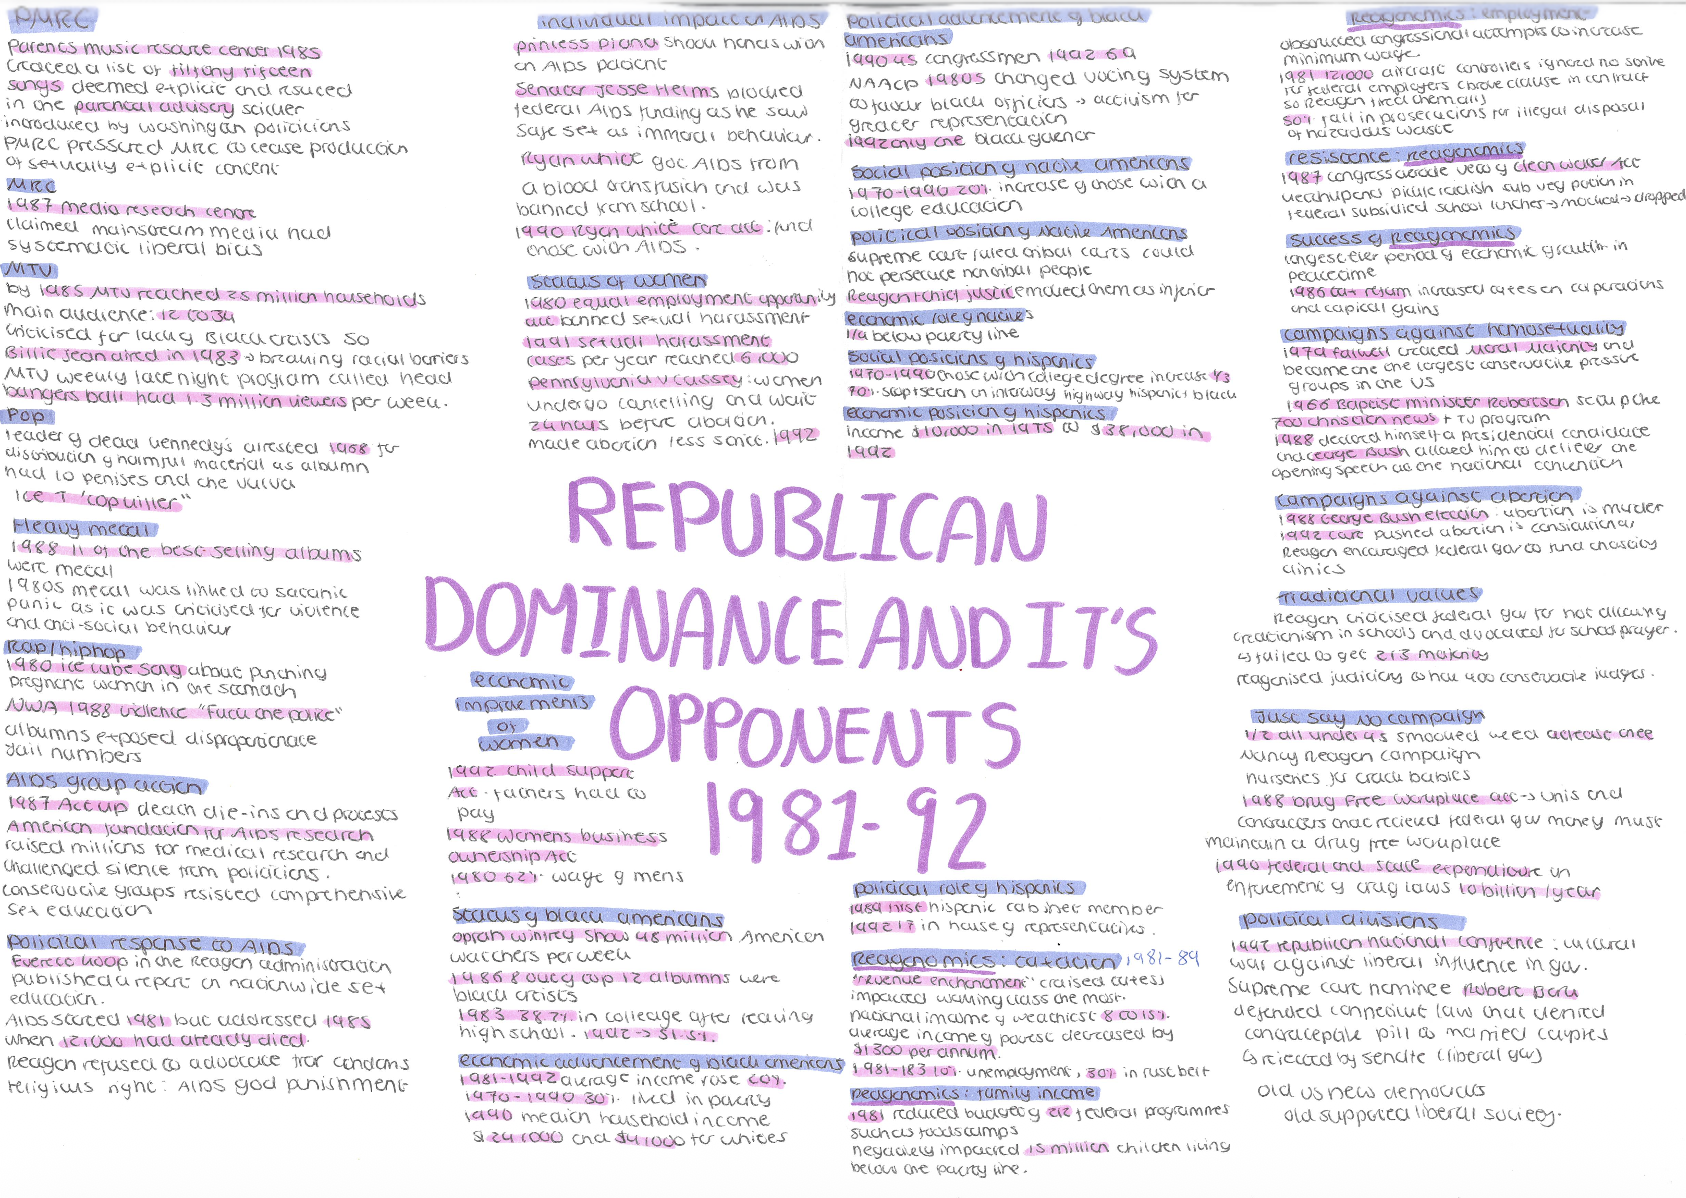 PMRC
Parents music resource center 1985
created a list of filthy fifteen
songs deemed explicit and issued
in the parental advisory sticker
introduced by washington politicians
PMRC pressured MRC to cease production
of sexually explicit content
MRC
1987 media research centre
claimed mainstream media had
systematic liberal bias
MTV
by 1985 MTV reached 25 million households
main audience: 12 to 34
criticised for lack of Black artists so
Billie Jean aired in 1983 → breaking racial barriers
MTV weekly late night program called head
bangers ball had 1.3 million viewers per week.
Pop
leader of dead kennedy's arrested 1968 for
distribution of harmful material as album
had 10 penises and the vulva
ICE T 'cop killer"
Heavy metal
1988 11 of the best-selling albums
were metal
1980s metal was linked to satanic
panic as it was criticised for violence
and anti-social behaviour
Rap/hiphop
1980 ice cube song about punching
pregnant women in the stomach
NWA 1988 violence "Fuck the police"
albums exposed disproportionate
jail numbers
AIDS group action
1987 Act up death die-ins and protests
American foundation for AIDS research
raised millions for medical research and
challenged silence from politicians.
conservative groups resisted comprehensive
sex education
political response to AIDS
Everett Koop in the Reagan administration
published a report on nationwide sex
education.
AIDS started 1981 but addressed 1985
when 12,000 had already died.
Reagan refused to advocate for condoms
religious right: AIDS god punishment
individual impact of AIDS
princess Diana shook hands with
an AIDS patient
Senator Jesse Helms blocked
federal AIDS funding as he saw
safe sex as immoral behaviour.
Ryan white got AIDS from
a blood transfusion and was
banned from school.
1990 Ryan white care act: fund
those with AIDS.
Status of women
1980 equal employment opportunity
act banned sexual harassment
1991 sexual harassment
cases per year reached 6,000
pennsylvania v cassey: women
undergo cancelling and wait
24 hours before abortion.
made abortion less strict. 1992
REPUBLICAN
DOMINANCE AND IT'S
OPPONENTS
1981-92
economic
improvements
of
women
1992 child support
Act. fathers had to
pay
1988 womens business
ownership Act
1980 62% wage of mens
:
Status of black americans
oprah winfrey show 48 million American
watchers per week
1986 8 out of top 12 albums were
black artists
1983 38.2% in colleage after leaving
high school. 1992 → 51.5%.
economic advancement of black americans
1981-1992 average income rose 60%.
1970-1990 30% lived in poverty
1990 median household income
$24,000 and $41000 for whites
political advancement of black
americans
1990 45 congressmen 1992 69
NAACP 1980s changed voting system
to favour black officers → activism for
greater representation
1992 only one black governor
Social position of native americans
1970-1990 20% increase of those with a
college education
political position of Native Americans
supreme court ruled tribal courts could
not persecute non tribal people
Reagan + chief justice emailed them as inferior
economic role of natives
1/4 below poverty line
Social positions of hispanics
1970-1990 those with college degree increase 1/3
70% stop search on interway highway hispanic black
economic position of hispanics
income $10,000 in 1975 to $38,000 in
1992
political role of hispanics
1989 first hispanic cabinet member
1992 17 in house of representatives.
Reagonomics: taxation 1981-89
"revenue enchancment" (raised taxes)
impacted working class the most.
national income of weathiest 8 to 15%.
average income of poorest decreased by
$1300 per annum.
1981-183 10% unemployment, 30% in rust belt
Reagonomics: family income
1981 reduced budget of 212 federal programmes
such as foodstamps
negatively impacted 15 million children living
below the poverty line.
Reagonomics: employment
obstructed congressional attempts to increase
minimum wage.
1981 12,000 aircraft controllers ignored no strike
for federal employers strike clause in contract
so Reagan fired them all
50% fall in prosecutions for illegal disposal
of hazadous waste
resistance: Reagonomics
1987 congress overrode veto of clean water Act
ketchup and pickle radish sub veg portion in
federal subsidied school lunches → mocked → dropped
success of Reagonomics
longest ever period of economic growth in
peacetime
1986 tax reform increased rates on corporations
and capital gains
campaigns against homosexuality
1979 falwell created Moral Majority and
became one the largest conservative pressure
groups in the US
1966 Baptist minister Robertson set up the
700 christian news + TV program
1988 declared himself a presidential candidate
and George Bush allowed him to deliver the
opening speech at the national convention
campaigns against abortion
1988 George Bush election: abortion is murder
1992 court pushed abortion is constitutional
Reagan encouraged federal gov to fund chastity
clinics
Traditional values
Reagan criticised federal gov for not allowing
creationism in schools and advocated for school prayer.
↳ failed to get 2/3 majority
reaganised judiciary to have 400 conservative judges.
Just say No campaign
1/2 all under 45 smoked weed at least once
Nancy Reagan campaign
nurseries for crack babies
1988 Drug Free workplace act → unis and
contractors that recieved federal gov money must
maintain a drug free workplace
1990 federal and state expenditure on
enforcement of drug laws 10 billion/year
political divisions
1992 republican national conference: cultural
war against liberal influence in gov.
Supreme court nominee Robert Bork
defended connecticut law that denied
contraceptive pill to married couples
↳ rejected by senate (liberal gov)
old vs new democrats
old supported liberal society.